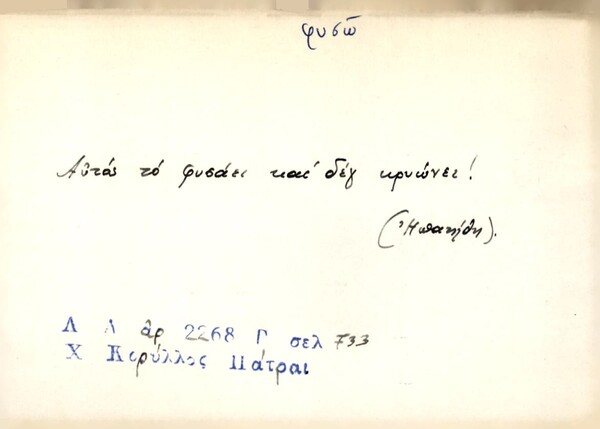 φυσῶ
Αὐτός τό φυσάει καί δέν κρυώνει!
Λ Α ἀρ 2268 Γ σελ 733
Χ Κορύλλος Πάτραι